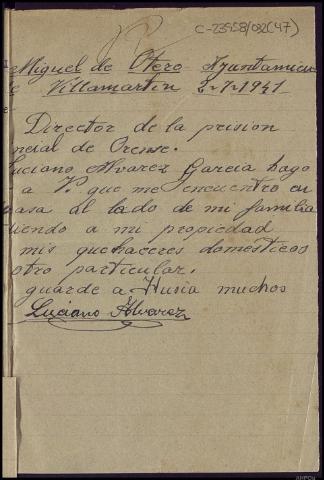 C-23958/032(47)
Miguel de Otero Ayuntamien
e Villamartin 2-1-1941
Director de la prision
neral de Orense.
Luciano Alvarez Garcia hago
a V. que me encuentro en
casa al lado de mi familia
iendo a mi propiedad
mis quehaceres domésticos
otro particular.
guarde a Husia muchos
Luciano Alvarez
AHPOU